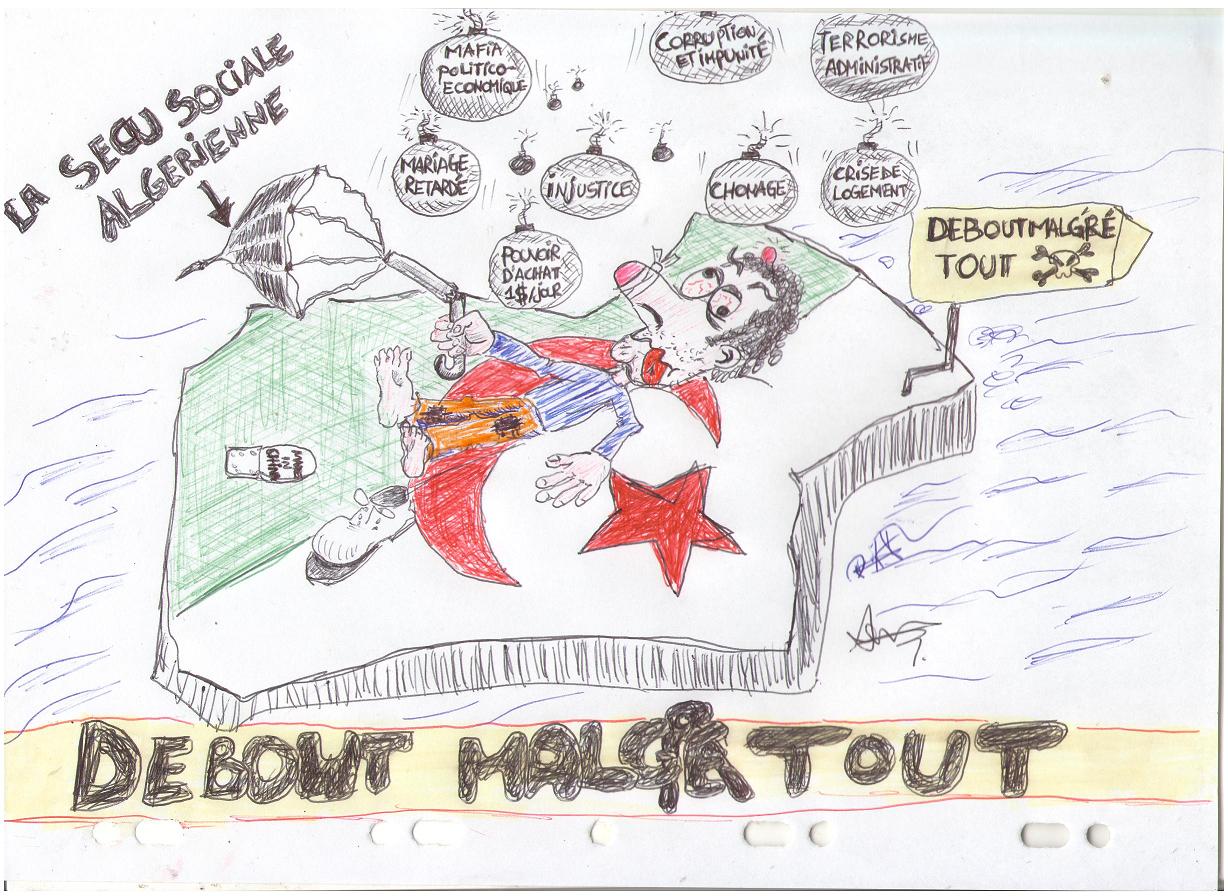 LA SECU SOCIALE
ALGERIENNE
MAFIA
POLITICO-
ECONOMIQUE
CORRUPTION
ET IMPUNITÉ
TERRORISME
ADMINISTRATIF
MARIAGE
RETARDÉ
INJUSTICE
CHOMAGE
CRISE DE
LOGEMENT
POUVOIR
D'ACHAT
1$/JOUR
DEBOUT MALGRÉ
TOUT
MADE
IN
CHINA
DEBOUT MALGRÉ TOUT